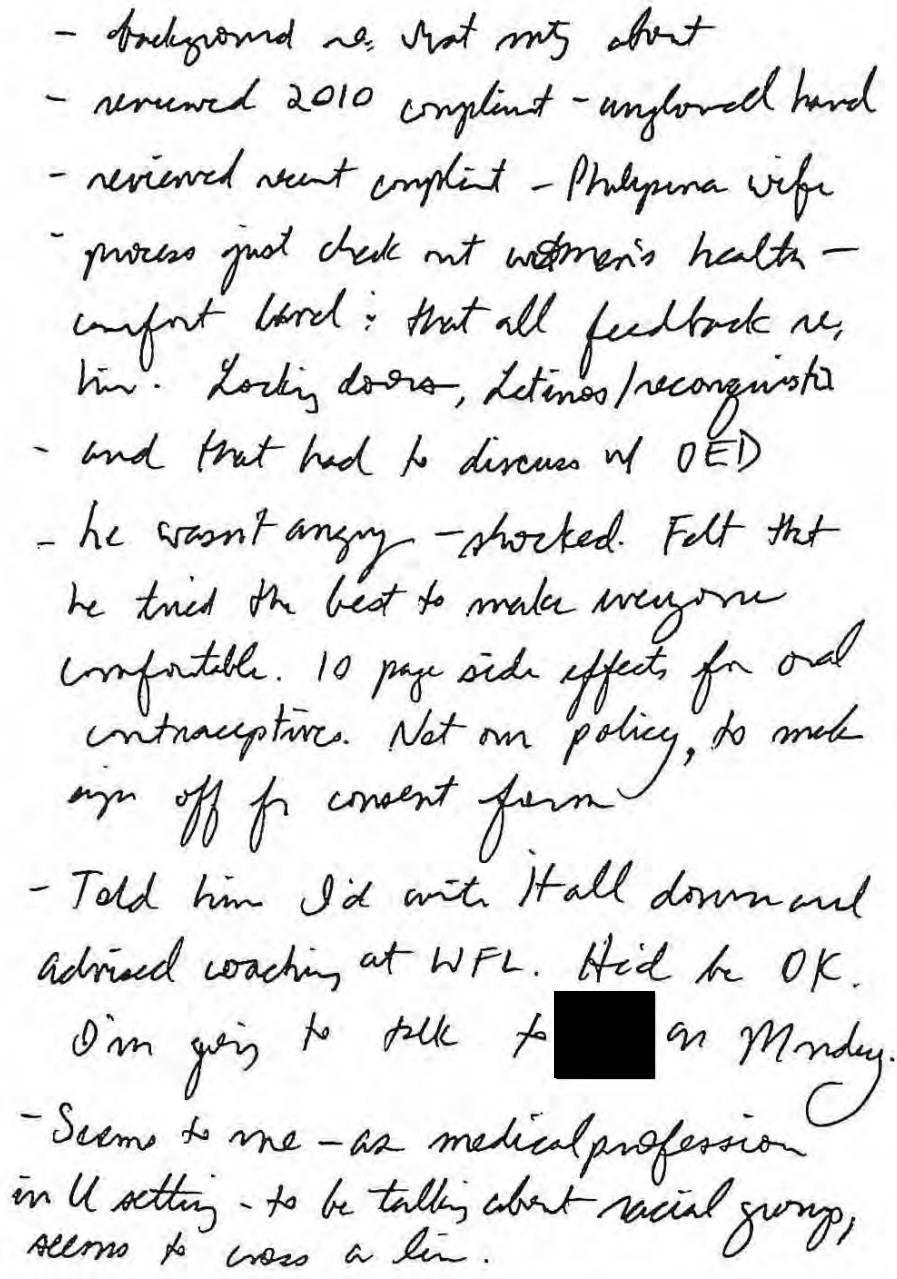 - background re: what mtg about
- reviewed 2010 complaint - ungloved hand
- reviewed recent complaint - Philipina wife
- process just check out women's health -
comfort level; that all feedback re,
him. Locking doors, Latinos/reconquista
- and that had to discuss w/ OED
- he wasn't angry - shocked. Felt that
he tried the best to make everyone
comfortable. 10 page side effects for oral
contraceptives. Not our policy, to make
sign off for consent form
- Told him I'd write it all down and
advised coaching at WFL. He'd be OK.
I'm going to talk to on Monday.
- Seems to me - as medical profession
in U setting - to be talking about racial group,
seems to cross a line.